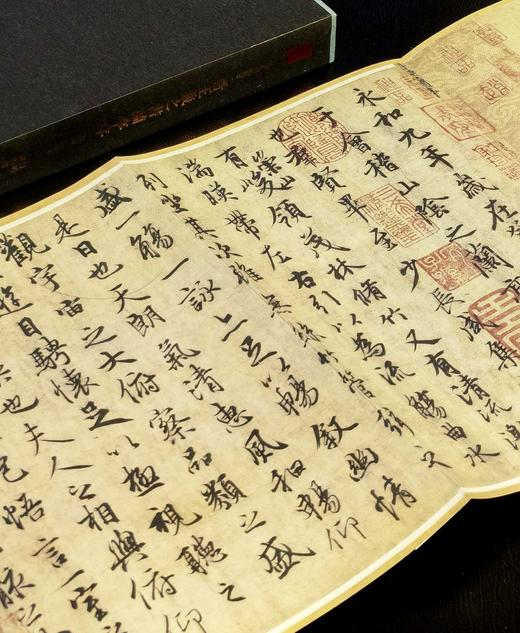 永和九年歲在
于會稽山陰之蘭
也羣賢畢至少長咸集
有崇山峻領茂林脩竹又有清流激
湍暎帶左右引以為流觴曲水
列坐其次雖無絲竹管弦之
盛一觴一詠亦足以暢敘幽情
是日也天朗氣清惠風和暢仰
觀宇宙之大俯察品類之盛
遊目騁懷足以極視聽之
也夫人之相與俯仰
悟言一室